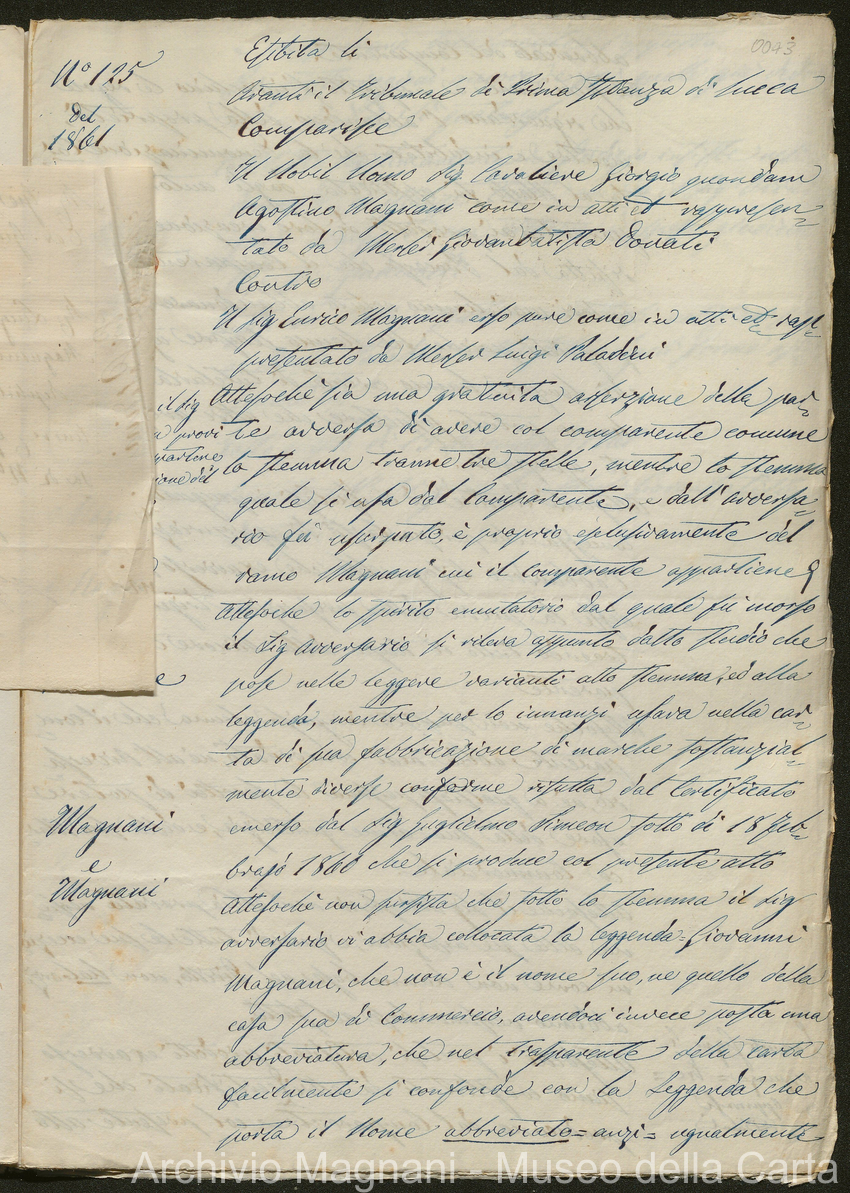 0093
Nº 125
del
1861
Esibita li
Avanti il Tribunale di Prima Istanza di Lucca
Comparisce
Il Nobil Uomo Sig. Cavaliere Giorgio quondam
Agostino Magnani come in atti et rappresen=
tato da Messer Giovanbatista Donati
Contro
Il Sig Enrico Magnani esso pure come in atti et rap=
presentato da Messer Luigi Paladini
Attesoché sia una gratuita asserzione della par=
te avversa di avere col comparente comune
lo stemma tranne tre stelle, mentre lo stemma
quale si usa dal Comparente, e dall'avversa=
rio fù usurpato, è proprio esclusivamente del
ramo Magnani cui il comparente appartiene
Attesoche lo spirito emulatorio dal quale fù mosso
il Sig avversario si rileva appunto dallo studio che
pose nelle leggere varianti allo stemma, ed alla
leggenda, mentre per lo innanzi usava nella car=
ta di sua fabbricazione di marche sostanzial=
mente diverse conforme risulta dal Certificato
emesso dal Sig Guglielmo Simeon sotto di 18 Feb=
brajo 1860 che si produce col presente atto
Attesoché non sussista che sotto lo stemma il Sig
avversario vi abbia collocata la leggenda=Giovanni
Magnani, che non è il nome suo, ne quello della
casa sua di Commercio, avendoci invece posta una
abbreviatura, che nel trasparente della carta
facilmente si confonde con la Leggenda che
porta il Nome abbreviato= anzi= ugualmente
il Sig
a provi
partene
ione del
e
Magnani
e
Magnani
Archivio Magnani - Museo della Carta